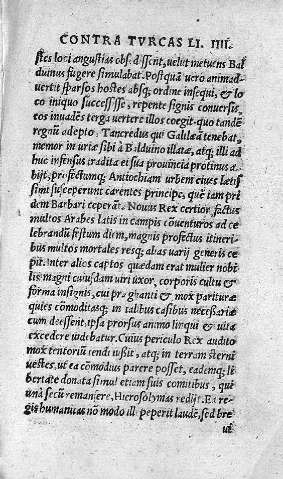 CONTRA TVRCAS LI. IIII.
stes loci angustias obsidissent, uelut metuens Bal
duinus fugere simulabat. Postquã uero animad-
uertit sparsos hostes absq; ordine insequi, & lo
co iniquo successisse, repente signis conuersis,
eos inuadẽs terga uertere illos coegit quo tandẽ
regnũ adepto. Tancredus qui Galilæã tenebat,
memor iniuriæ sibi à Balduino illatæ, atq; illi ad
huc infensus tradita ei sua prouincia protinus a
bijt, profectumq; Antiochiam urbem eiusẽ lætis
simi susceperunt carentes principe, quẽ iam pri
dem Barbari ceperãt. Nouus Rex certior factus
multos Arabes latis in campis cõuenturos ad ce
lebrandũ festum diem, magnis profectus itineri
bus multos mortales resq; alias uarij generis ce
pit. Inter alios captos quædam erat mulier nobi
lis magni cuiusdam uiri uxor, corporis cultu &
forma insignis, cui prægnanti & mox parituræ
quies cõmoditasq; in talibus casibus necessaria
cum deessent, ipsa prorsus animo linqui & uita
excedere uidebatur. Cuius periculo Rex audito
mox tentoriũ tendi iussit, atq; in terram sterni
uestes, ut ea cõmodius parere posset, eademq; li
bertate donata simul etiam suis comitibus, qui
unà secũ remanẽre, Hierosolymas redijt. Ea re-
gis humanitas nõ modo illi peperit laudẽ, sed bre
ui